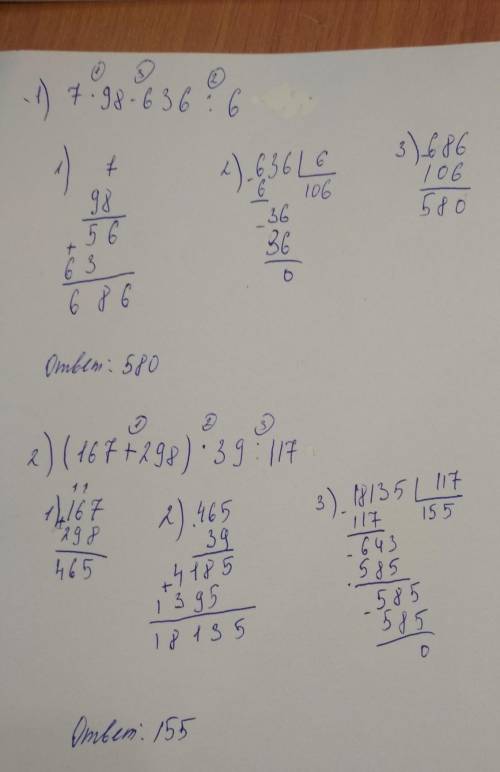 1) 7 · 98 - 636 : 6
① ③ ②
1) 7
98
56
+
63
686
2) - 636 | 6
6 106
- 36
36
0
3) - 686
106
580
Ответ: 580
① ② ③
2) (167 + 298) · 39 : 117
11
1) + 167
298
465
2) · 465
39
+ 4185
1395
18135
3) - 18135 | 117
117 155
- 643
585
- 585
585
0
Ответ: 155